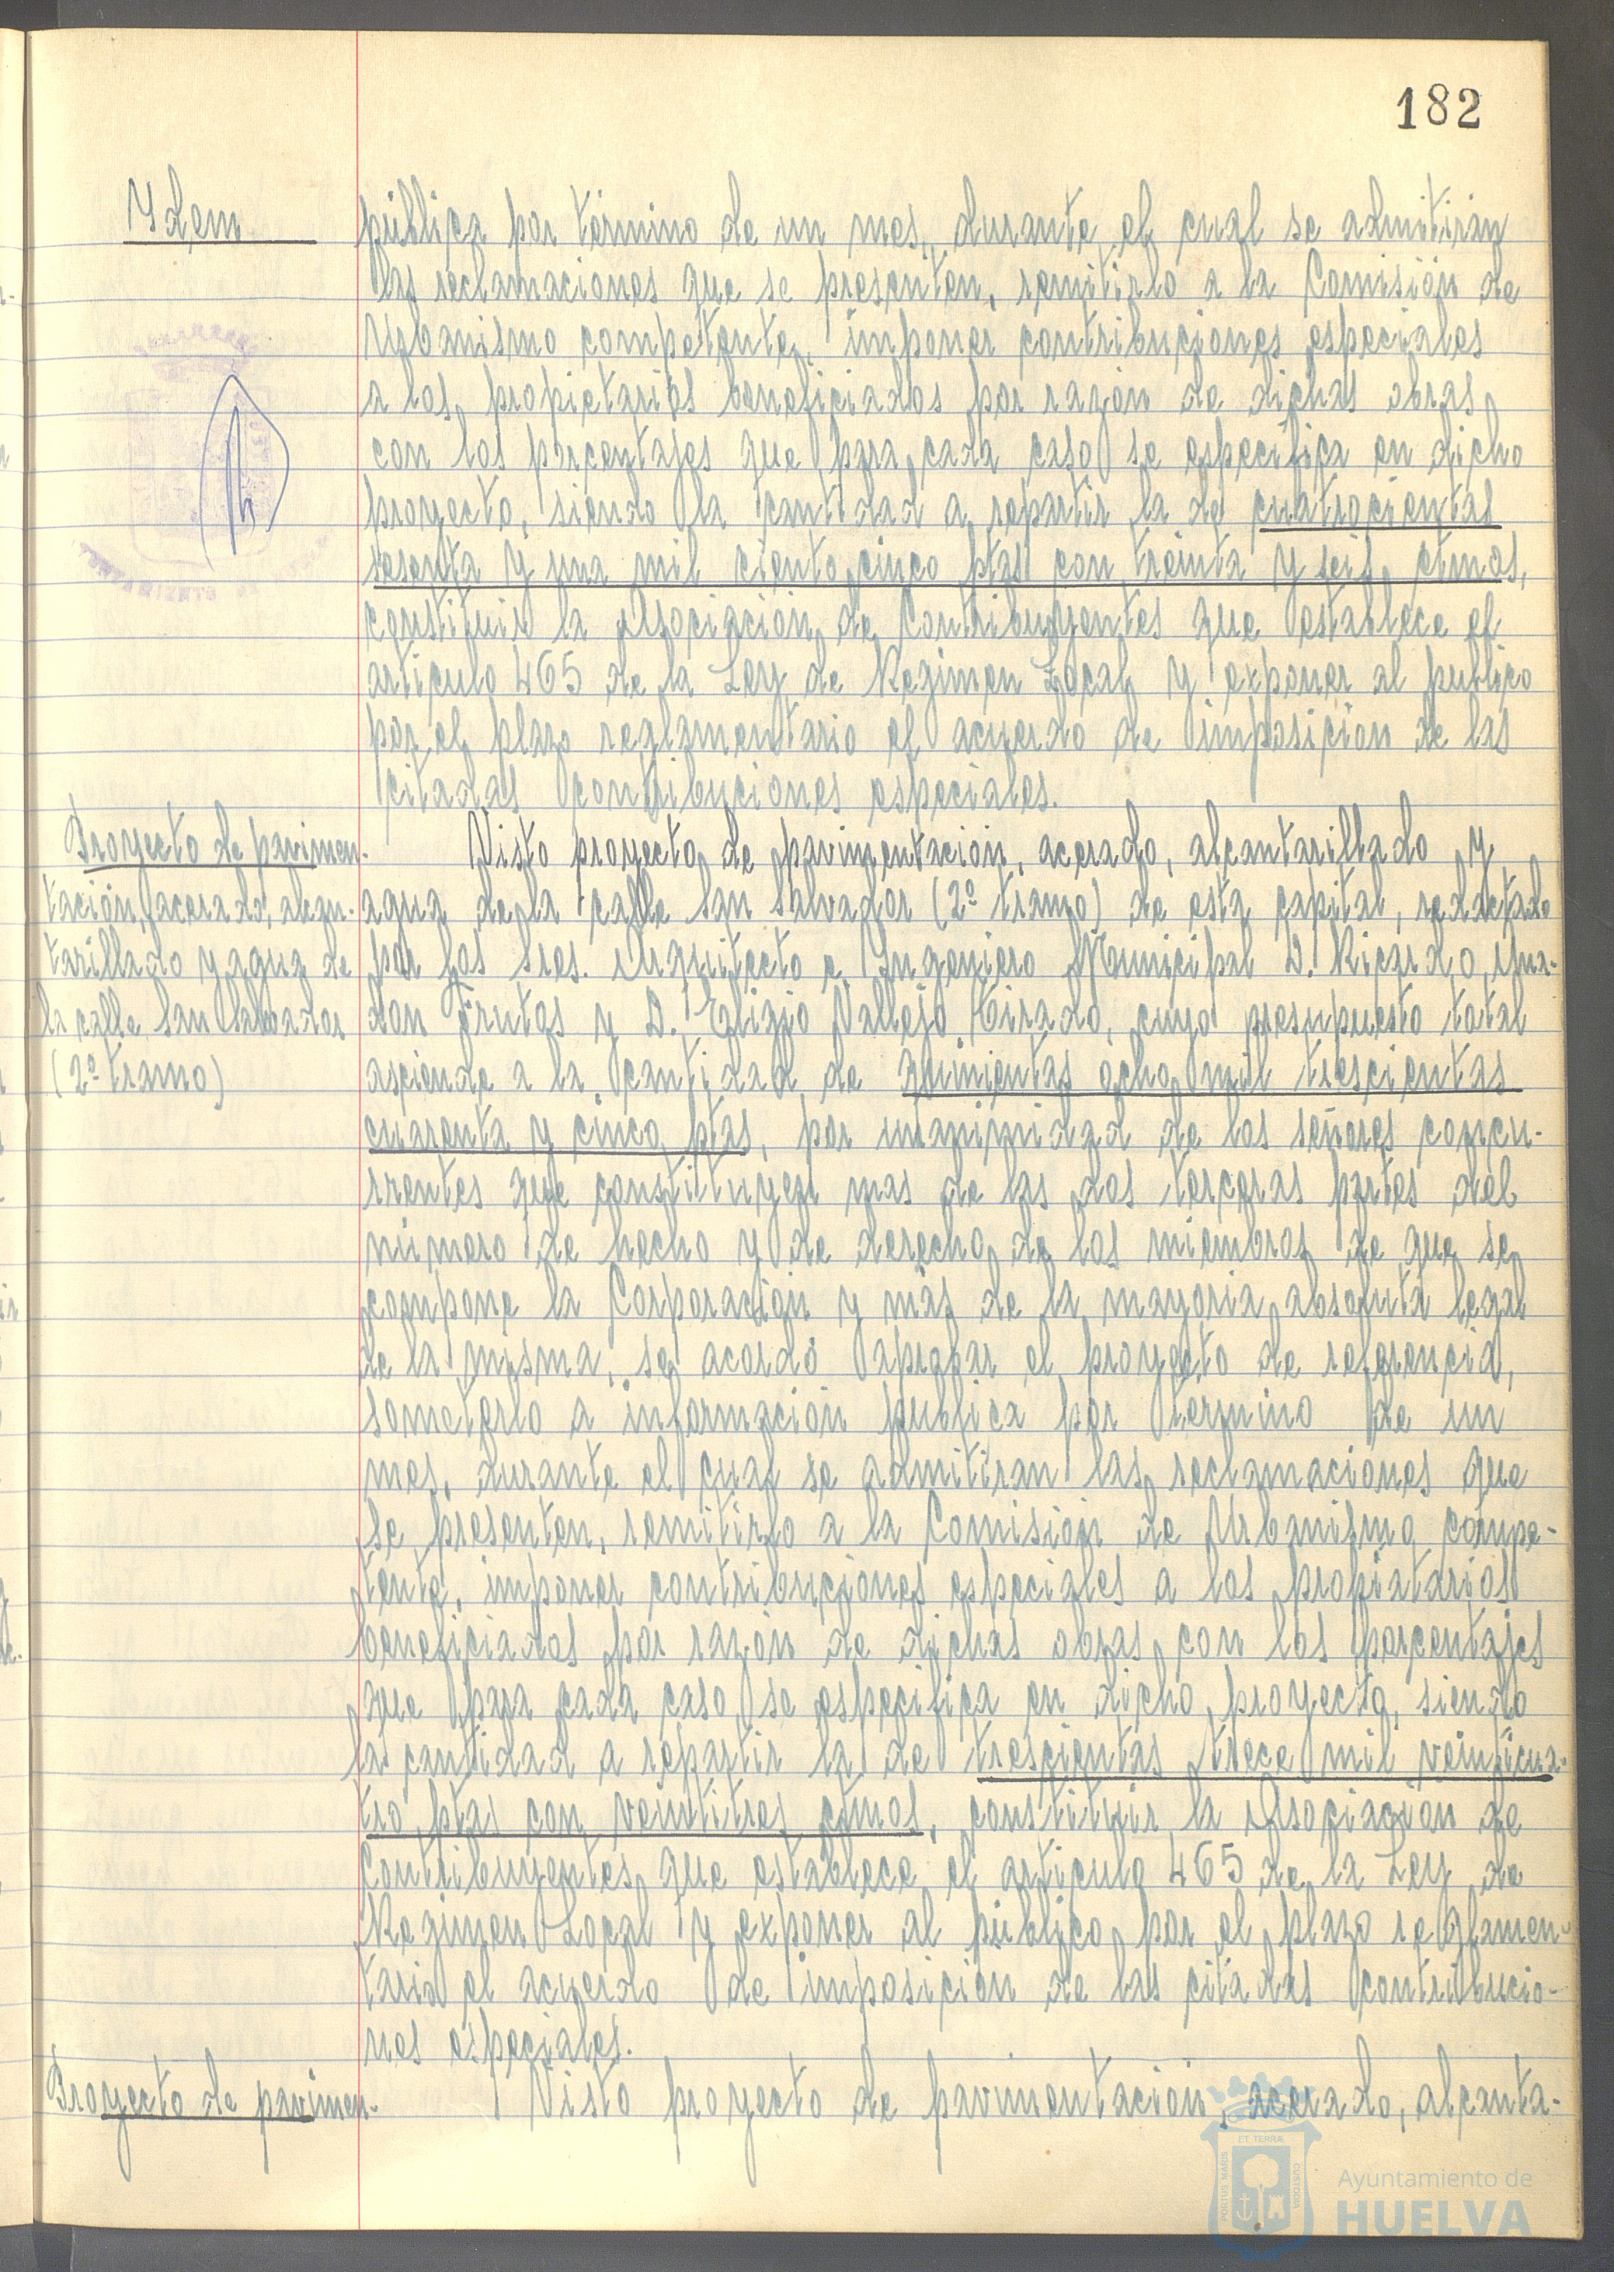 182
Ydem
pública por término de un mes, durante el cual se admitirán
las reclamaciones que se presenten, remitirlo a la Comisión de
Urbanismo competente, imponer contribuciones especiales
a los propietarios beneficiados por razón de dichas obras
con los porcentajes que para cada caso se especifica en dicho
proyecto, siendo la cantidad a repartir la de cuatrocientas
sesenta y una mil ciento cinco ptas con treinta y seis ctmos,
constituir la Asociación de Contribuyentes que establece el
artículo 465 de la Ley de Regimen Local y exponer al publico
por el plazo reglamentario el acuerdo de imposición de las
citadas contribuciones especiales.
Proyecto de pavimen-
tación, acerado, alcan-
tarillado y agua de
la calle San Salvador
(2º tramo)
Visto proyecto de pavimentación, acerado, alcantarillado y
agua de la calle San Salvador (2º tramo) de esta capital, redactado
por los Sres. Arquitecto e Ingeniero Municipal D. Ricardo Ana-
don Frutos y D. Eligio Vallejo Tirado, cuyo presupuesto total
asciende a la cantidad de quinientas ocho mil trescientas
cuarenta y cinco ptas, por unanimidad de los señores concu-
rrentes que constituyen mas de las dos terceras partes del
número de hecho y de derecho de los miembros de que se
compone la Corporación y más de la mayoria absoluta legal
de la misma, se acordó aprobar el proyecto de referencia,
someterlo a información publica por termino de un
mes, durante el cual se admitiran las reclamaciones que
se presenten, remitirlo a la Comisión de Urbanismo compe-
tente, imponer contribuciones especiales a los propietarios
beneficiados por razón de dichas obras con los porcentajes
que para cada caso se especifica en dicho proyecto, siendo
la cantidad a repartir la de trescientas trece mil veinticua-
tro ptas con veintitres ctmos, constituir la Asociación de
Contribuyentes que establece el artículo 465 de la Ley de
Regimen Local y exponer al público por el plazo reglamen-
tario el acuerdo de imposición de las citadas contribucio-
nes especiales.
Proyecto de pavimen-
Visto proyecto de pavimentación, acerado, alcanta-
Ayuntamiento de
HUELVA